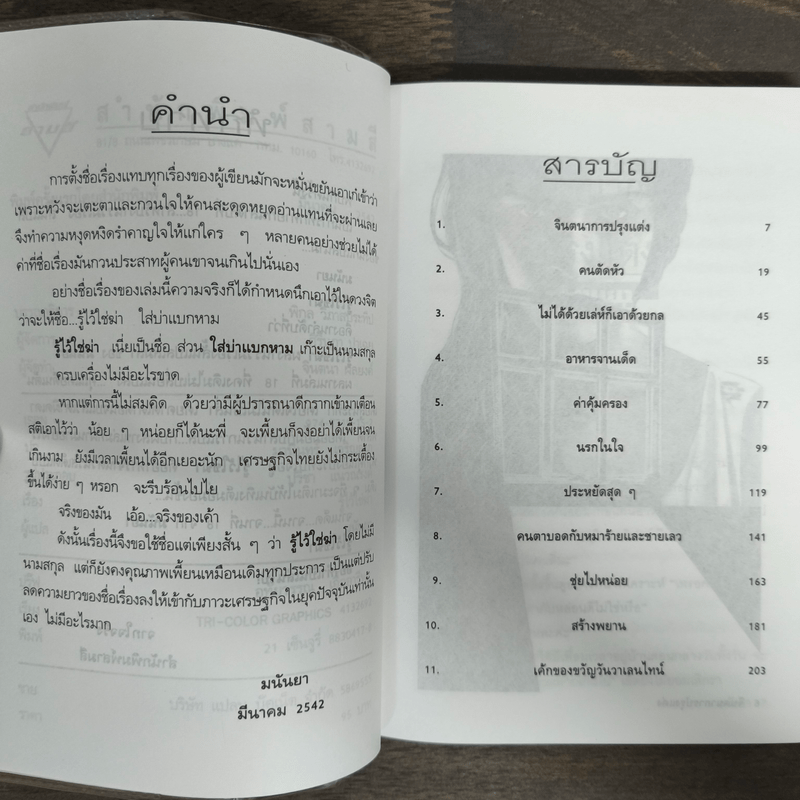 คำนำ
การตั้งชื่อเรื่องแทบทุกเรื่องของผู้เขียนมักจะหมั่นขยันเอาเก๋เข้าว่า
เพราะหวังจะเตะตาและกวนใจให้คนสะดุดหยุดอ่านแทนที่จะผ่านเลย
จึงทำความหงุดหงิดรำคาญใจให้แก่ใคร ๆ หลายคนอย่างช่วยไม่ได้
ค่าที่ชื่อเรื่องมันกวนประสาทผู้คนเขาจนเกินไปนั่นเอง
อย่างชื่อเรื่องของเล่มนี้ความจริงก็ได้กำหนดนึกเอาไว้ในดวงจิต
ว่าจะให้ชื่อ...รู้ไว้ใช่ฆ่า ใส่บ่าแบกหาม
รู้ไว้ใช่ฆ่า เนี่ยเป็นชื่อ ส่วน ใส่บ่าแบกหาม เก๊าะเป็นนามสกุล
ครบเครื่องไม่มีอะไรขาด
หากแต่การนี้ไม่สมคิด ด้วยว่ามีผู้ปรารถนาดีกรากเข้ามาเตือน
สติเอาไว้ว่า น้อย ๆ หน่อยก็ได้นะพี่ จะเพี้ยนก็จงอย่าได้เพี้ยนจน
เกินงาม ยังมีเวลาเพี้ยนได้อีกเยอะนัก เศรษฐกิจไทยยังไม่กระเตื้อง
ขึ้นได้ง่าย ๆ หรอก จะรีบร้อนไปไย
จริงของมัน เอ้อ...จริงของเค้า
ดังนั้นเรื่องนี้จึงขอใช้ชื่อแต่เพียงสั้น ๆ ว่า รู้ไว้ใช่ฆ่า โดยไม่มี
นามสกุล แต่ก็ยังคงคุณภาพเพี้ยนเหมือนเดิมทุกประการ เป็นแต่ปรับ
ลดความยาวของชื่อเรื่องลงให้เข้ากับภาวะเศรษฐกิจในยุคปัจจุบันเท่านั้น
เอง ไม่มีอะไรมาก
มนันยา
มีนาคม 2542
สารบัญ
1. จินตนาการปรุงแต่ง 7
2. คนตัดหัว 19
3. ไม่ได้ด้วยเล่ห์ก็เอาด้วยกล 45
4. อาหารจานเด็ด 55
5. ค่าคุ้มครอง 77
6. นรกในใจ 99
7. ประหยัดสุด ๆ 119
8. คนตาบอดกับหมาร้ายและชายเลว 141
9. ซุ่ยไปหน่อย 163
10. สร้างพยาน 181
11. เค้กของขวัญวันวาเลนไทน์ 203